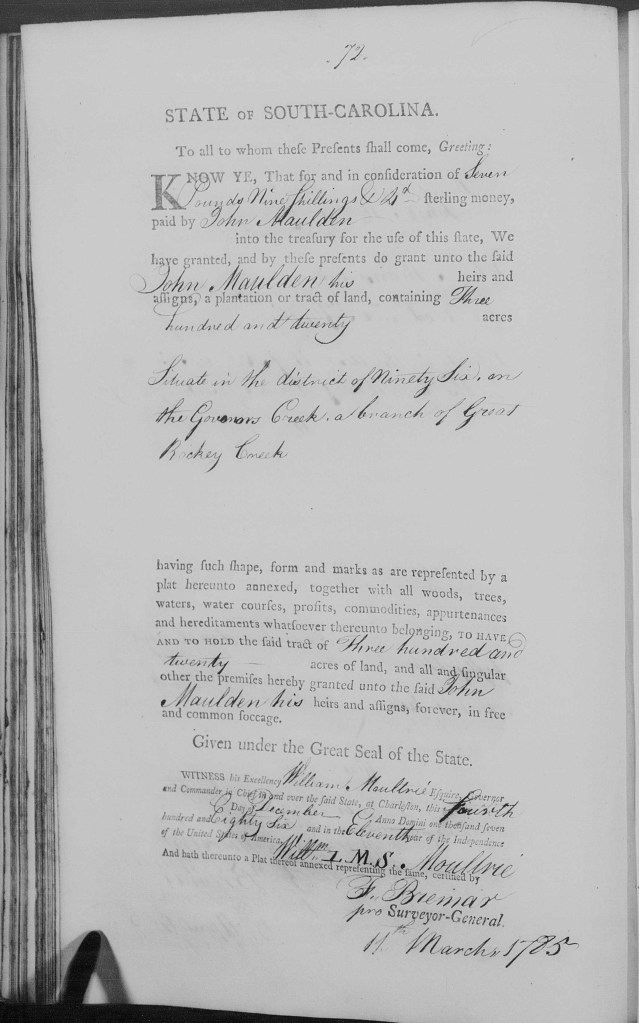 72.
STATE OF SOUTH-CAROLINA.
To all to whom these Presents shall come, Greeting:
KNOW YE, That for and in consideration of Seven
Pounds Nine Shillings & 4d sterling money,
paid by John Maulden
into the treasury for the use of this state, We
have granted, and by these presents do grant unto the said
John Maulden his heirs and
assigns, a plantation or tract of land, containing Three
hundred and twenty acres
Situate in the district of Ninety Six, on
the Govonors Creek, a branch of Great
Rockey Creek
having such shape, form and marks as are represented by a
plat hereunto annexed, together with all woods, trees,
waters, water courses, profits, commodities, appurtenances
and hereditaments whatsoever thereunto belonging, TO HAVE
AND TO HOLD the said tract of Three hundred and
twenty acres of land, and all and singular
other the premises hereby granted unto the said John
Maulden his heirs and assigns, forever, in free
and common soccage.
Given under the Great Seal of the State.
WITNESS his Excellency William Moultrie Esquire, Governor
and Commander in Chief in and over the said State, at Charleston, this Fourth
Day of December Anno Domini one thousand seven
hundred and Eighty Six and in the Eleventh year of the Independence
of the United States of America.
Willm L.M.S. Moultrie
And hath thereunto a Plat thereof annexed representing the same, certified by
F. Bremar
pro Surveyor-General.
11th March 1785